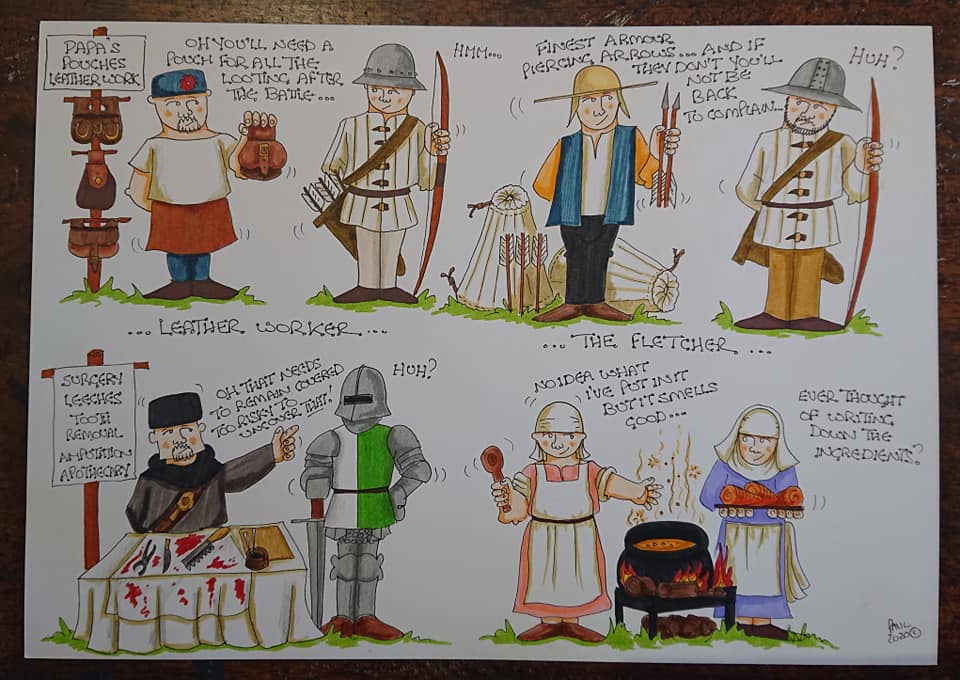 PAPA'S
POUCHES
LEATHERWORK
OH YOU'LL NEED A
POUCH FOR ALL THE
LOOTING AFTER
THE BATLE...
HMM...
FINEST ARMOUR
PIERCING ARROWS... AND IF
THEY DON'T YOU'LL
NOT BE
BACK
TO COMPLAIN...
HUH?
...LEATHER WORKER...
...THE FLETCHER...
SURGERY
LEECHES
TOOTH
REMOVAL
AMPUTATION
APOTHECARY
OH THAT NEEDS
TO REMAIN COVERED
TOO RISKY TO
UNCOVER THAT!
HUH?
NO IDEA WHAT
I'VE PUT IN IT
BUT IT SMELLS
GOOD...
EVER THOUGHT
OF WRITING
DOWN THE
INGREDIENTS?
PAUL
2020©